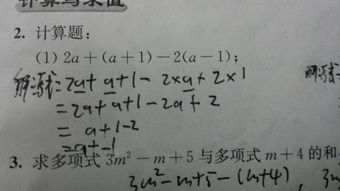 计算与求值
2. 计算题:
(1) 2a+(a+1)-2(a-1);
解:原式=2a+a+1-2×a+2×1
=2a+a+1-2a+2
= a+1-2
=a+-1
3. 求多项式 3m²-m+5 与多项式 m+4 的和
3m²-m+5-(m+4)